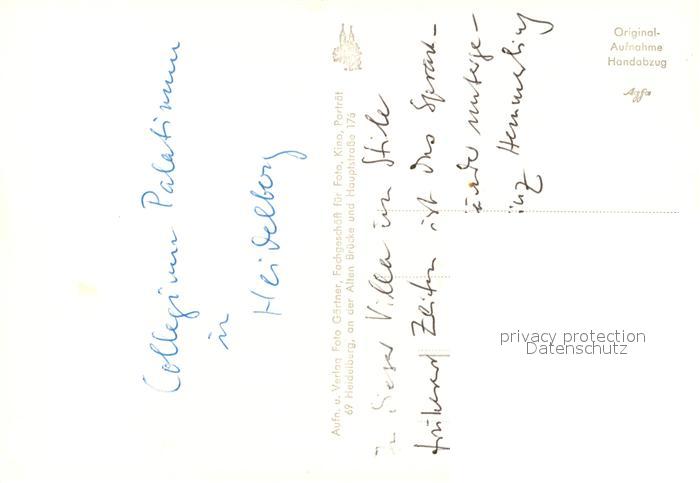 Collegium Palatinum
in
Heidelberg
Aufn. u. Verlag Foto Gärtner, Fachgeschäft für Foto, Kino, Porträt
69 Heidelberg, an der Alten Brücke und Hauptstraße 176
In dieser Villa im Stile
früherer Zeiten ist das Sprach-
unterge-
Hemmerling
Original-
Aufnahme
Handabzug
Agfa
privacy protection
Datenschutz